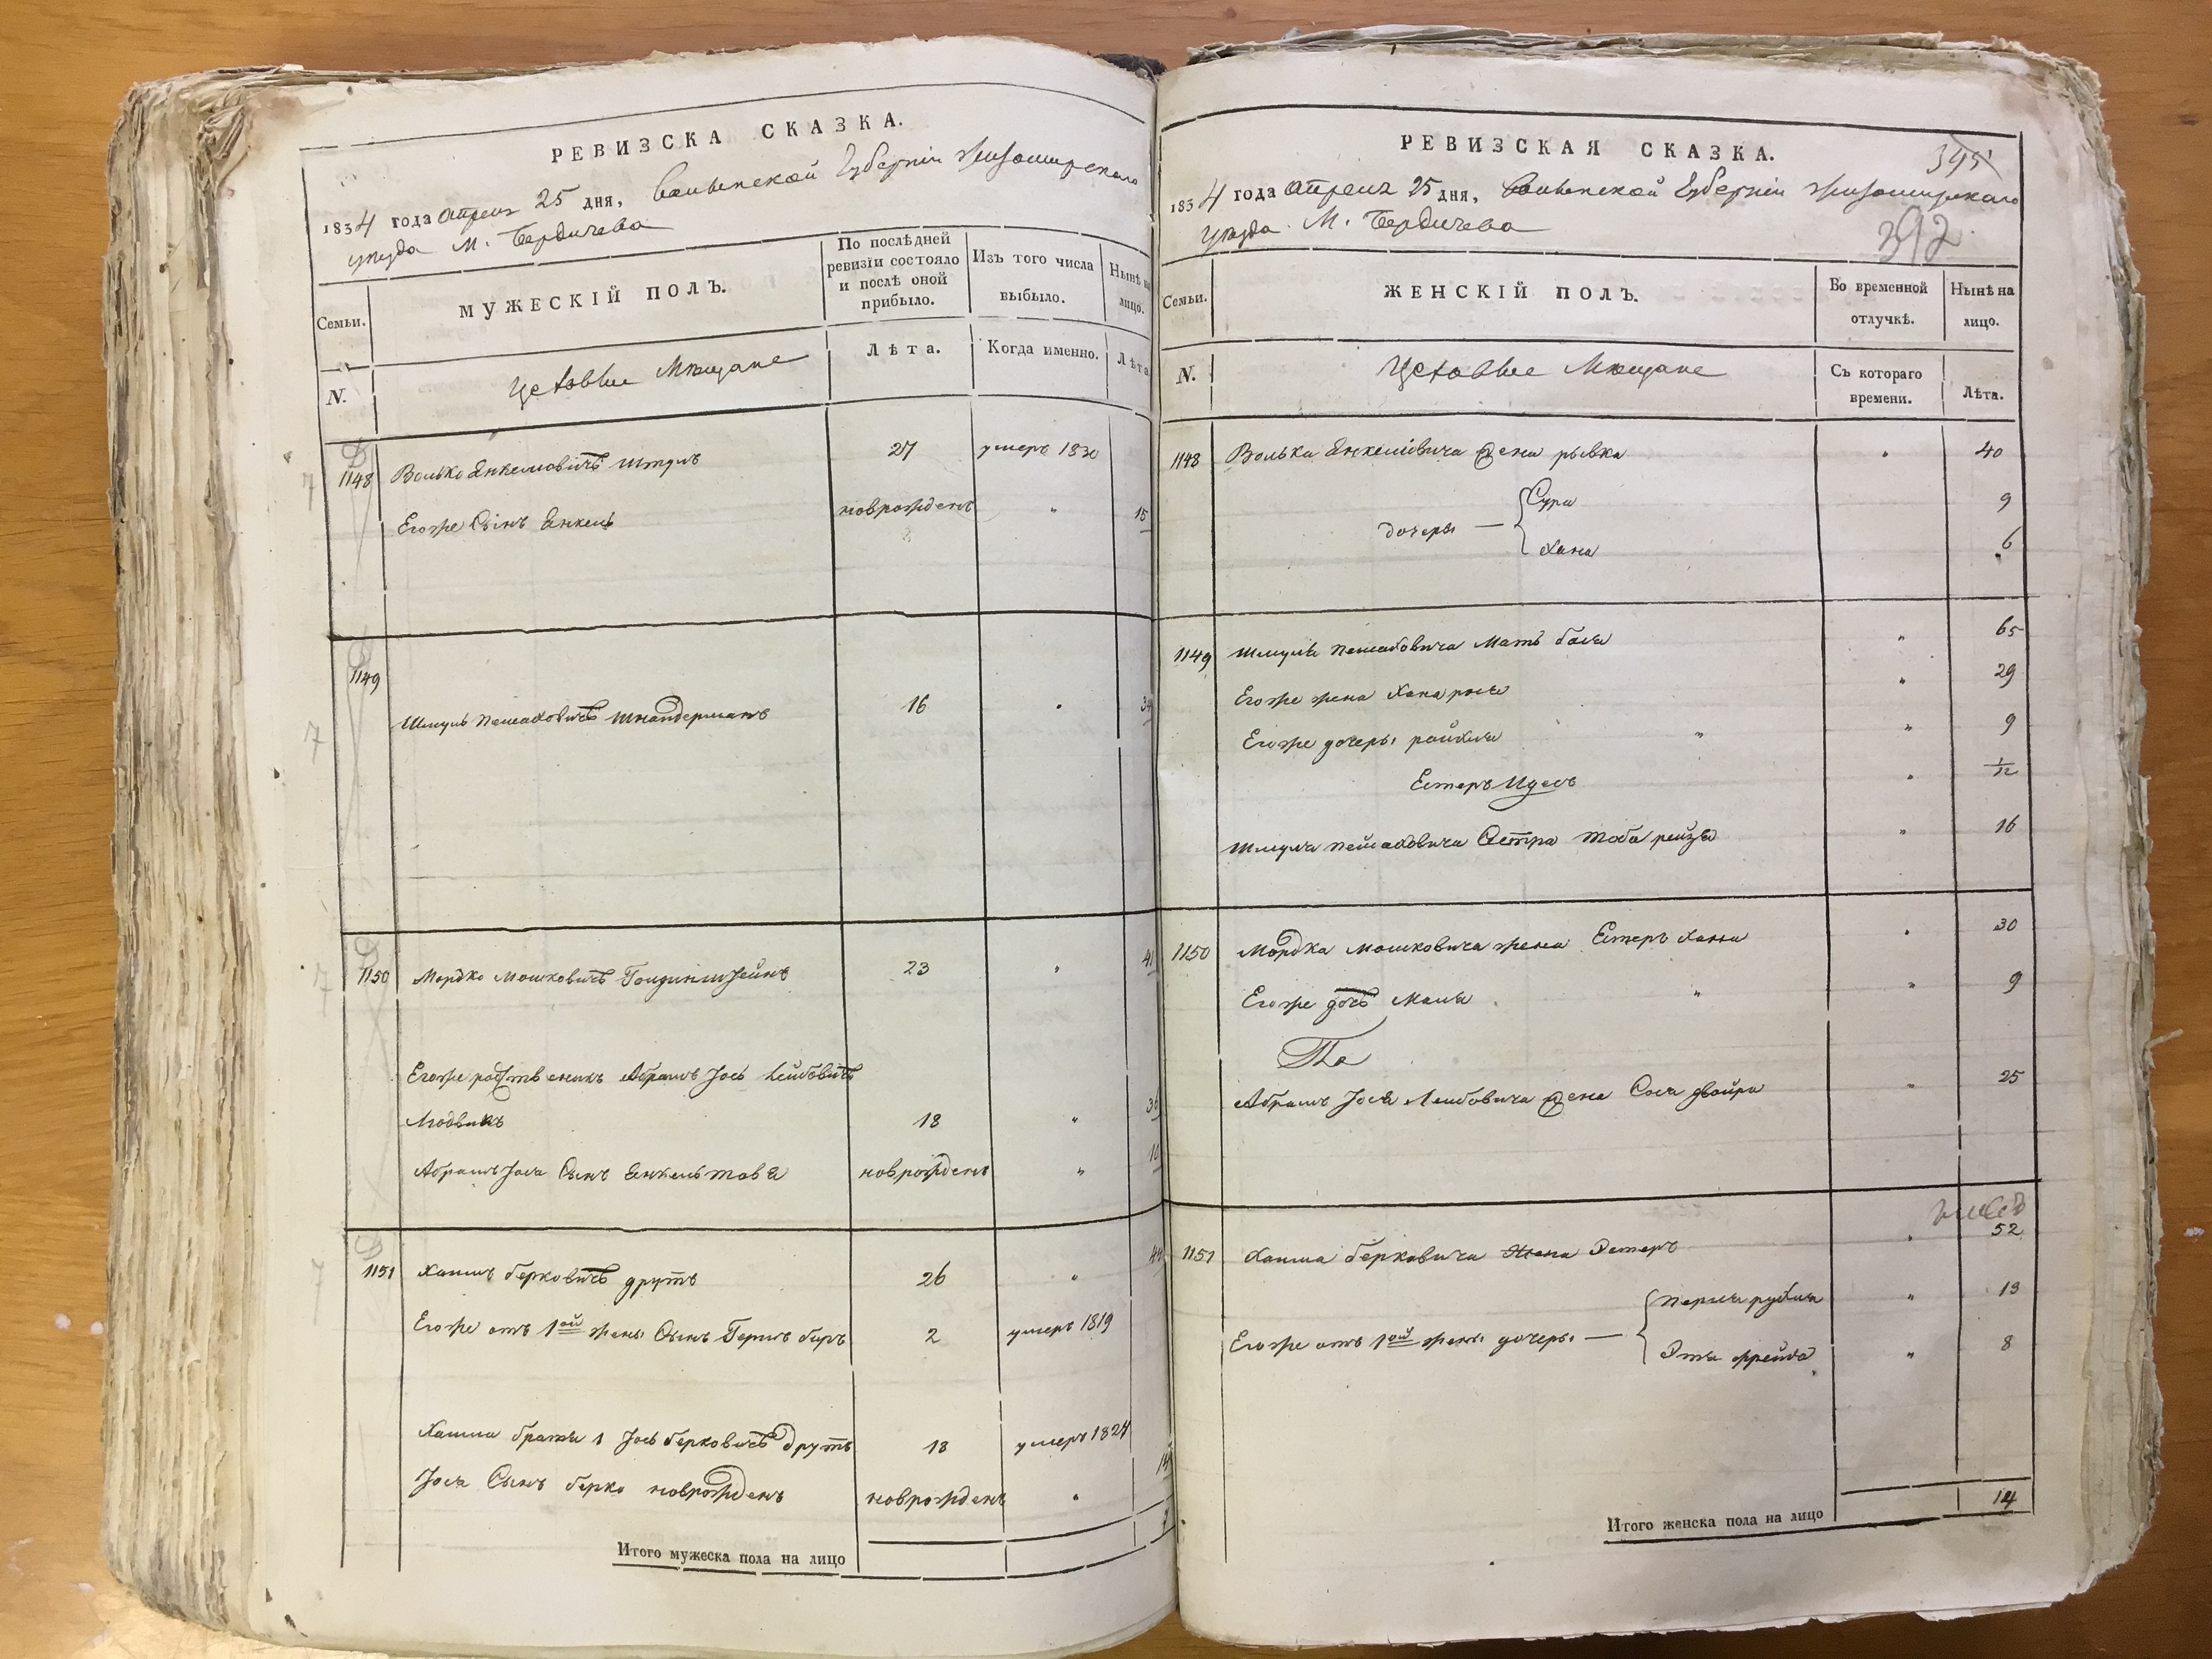 РЕВИЗСКА СКАЗКА.
1834 года апреля 25 дня, Волынской Губернiи Житомирскаго
уезда М. Бердичева
Семьи.
МУЖЕСКIЙ ПОЛЪ.
По послѣдней ревизiи состояло и послѣ оной прибыло.
Изъ того числа выбыло.
Нынѣ на лицо.
N.
Цеховые Мѣщане
Лѣта.
Когда именно.
Лѣта
1148 Волько Янкелiовичъ Штулъ 27 умеръ 1830
Егоже Сынъ Янкель новрожденъ " 15
1149
Шмуль Пейсаховичъ Шнайдерманъ 16 " 34
1150 Мордко Мошковичъ Голдинштейнъ 23 " 41
Егоже родственикъ Абрамъ Iось Лейбовичъ
Людвикъ 18 " 36
Абрамъ Iося Сынъ Янкель това новрожденъ " 10
1151 Хаимъ Берковичъ Друтъ 26 " 44
Егоже отъ 1ой жены Сынъ Гершъ беръ 2 умеръ 1819
Хаима братья 1 Iось Берковичъ Друтъ 18 умеръ 1824
Iося Сынъ Берко новрожденъ новрожденъ " 14
Итого мужеска пола на лицо 7
РЕВИЗСКАЯ СКАЗКА.
395
1834 года апреля 25 дня, Волынской Губернiи Житомирскаго
уезда М. Бердичева
392
Семьи.
ЖЕНСКIЙ ПОЛЪ.
Во временной отлучкѣ.
Нынѣ на лицо.
N.
Цеховые Мѣщане
Съ котораго времени.
Лѣта.
1148 Волька Янкелiовича жена рывка " 40
Сура 9
дочеры —
Хана 6
1149 Шмуля Пейсаховича Мать бася " 65
Егоже жена Хана " 29
Егоже дочеры райхля " " 9
Естеръ Идесъ " 1/12
Шмуля Пейсаховича Сестра Тоба рейзя " 16
1150 Мордка Мошковича жена Естеръ Ханна " 30
Егоже дочь Маля " " 9
Абрамъ Iося Лейбовича жена Сося двойра " 25
1151 Хаима Берковича жена Эстеръ " 52
Перля рухля " 13
Егоже отъ 1ой жены дочеры —
Этя фрейда " 8
Итого женска пола на лицо 14